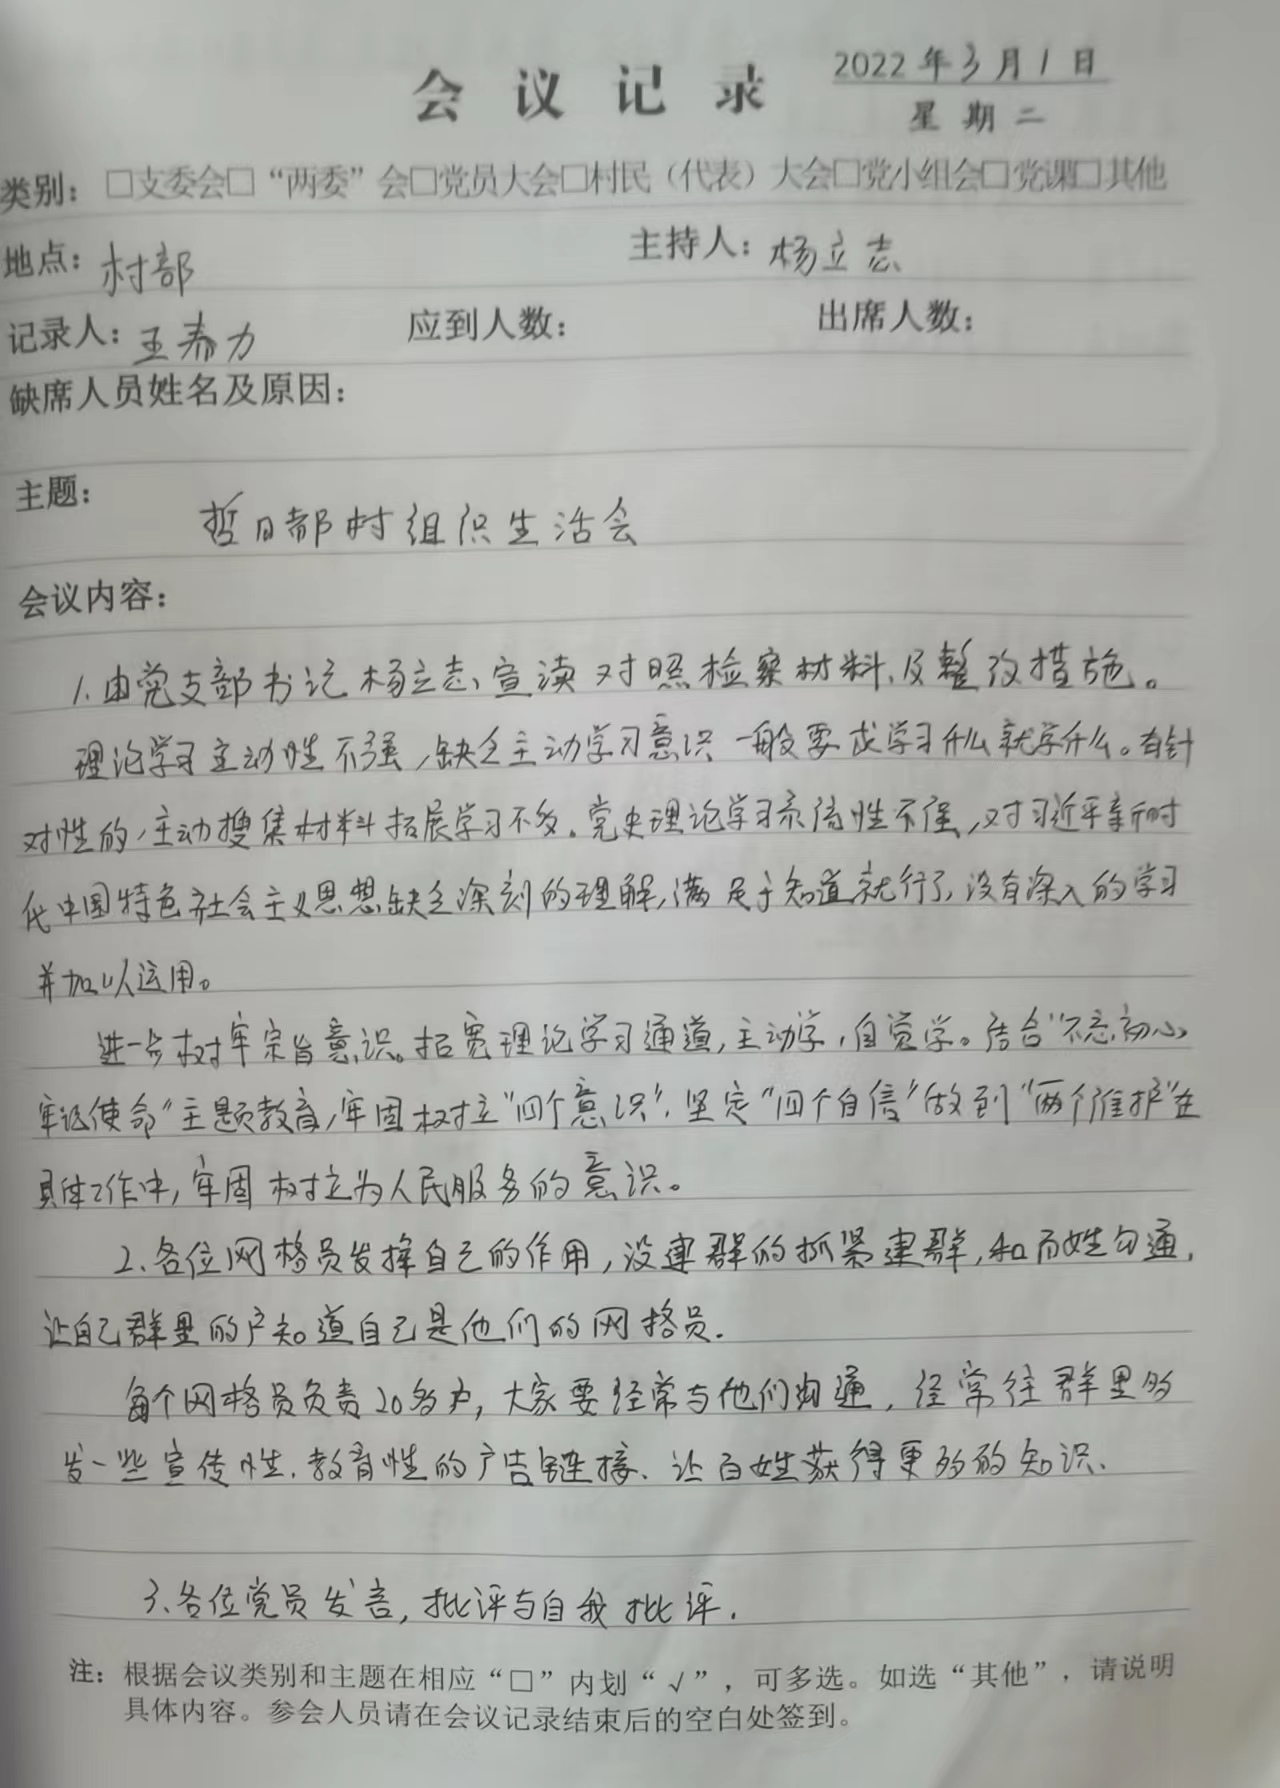 会议记录
2022年3月1日
星期二
类别：□支委会□“两委”会□党员大会□村民（代表）大会□党小组会□党课□其他
地点：村部 主持人：杨立志
记录人：王春力 应到人数： 出席人数：
缺席人员姓名及原因：
主题：
哲日部村组织生活会
会议内容：
1.由党支部书记杨立志宣读对照检察材料、及整改措施。
理论学习主动性不强，缺乏主动学习意识一般要求学习什么就学什么。有针
对性的，主动搜集材料拓展学习不多。党史理论学习系统性不强，对习近平新时
代中国特色社会主义思想缺乏深刻的理解，满足于知道就行了，没有深入的学习
并加以运用。
进一步树牢宗旨意识。拓宽理论学习通道，主动学，自觉学。结合“不忘初心
牢记使命”主题教育，牢固树立“四个意识”，坚定“四个自信”做到“两个维护”在
具体工作中，牢固树立为人民服务的意识。
2.各位网格员发挥自己的作用，没建群的抓紧建群，和百姓勾通，
让自己群里的户知道自己是他们的网格员.
每个网格员负责20多户，大家要经常与他们沟通，经常往群里多
发一些宣传性、教育性的广告链接、让百姓获得更多的知识、
3.各位党员发言，批评与自我批评.
注：根据会议类别和主题在相应“□”内划“√”，可多选。如选“其他”，请说明
具体内容。参会人员请在会议记录结束后的空白处签到。